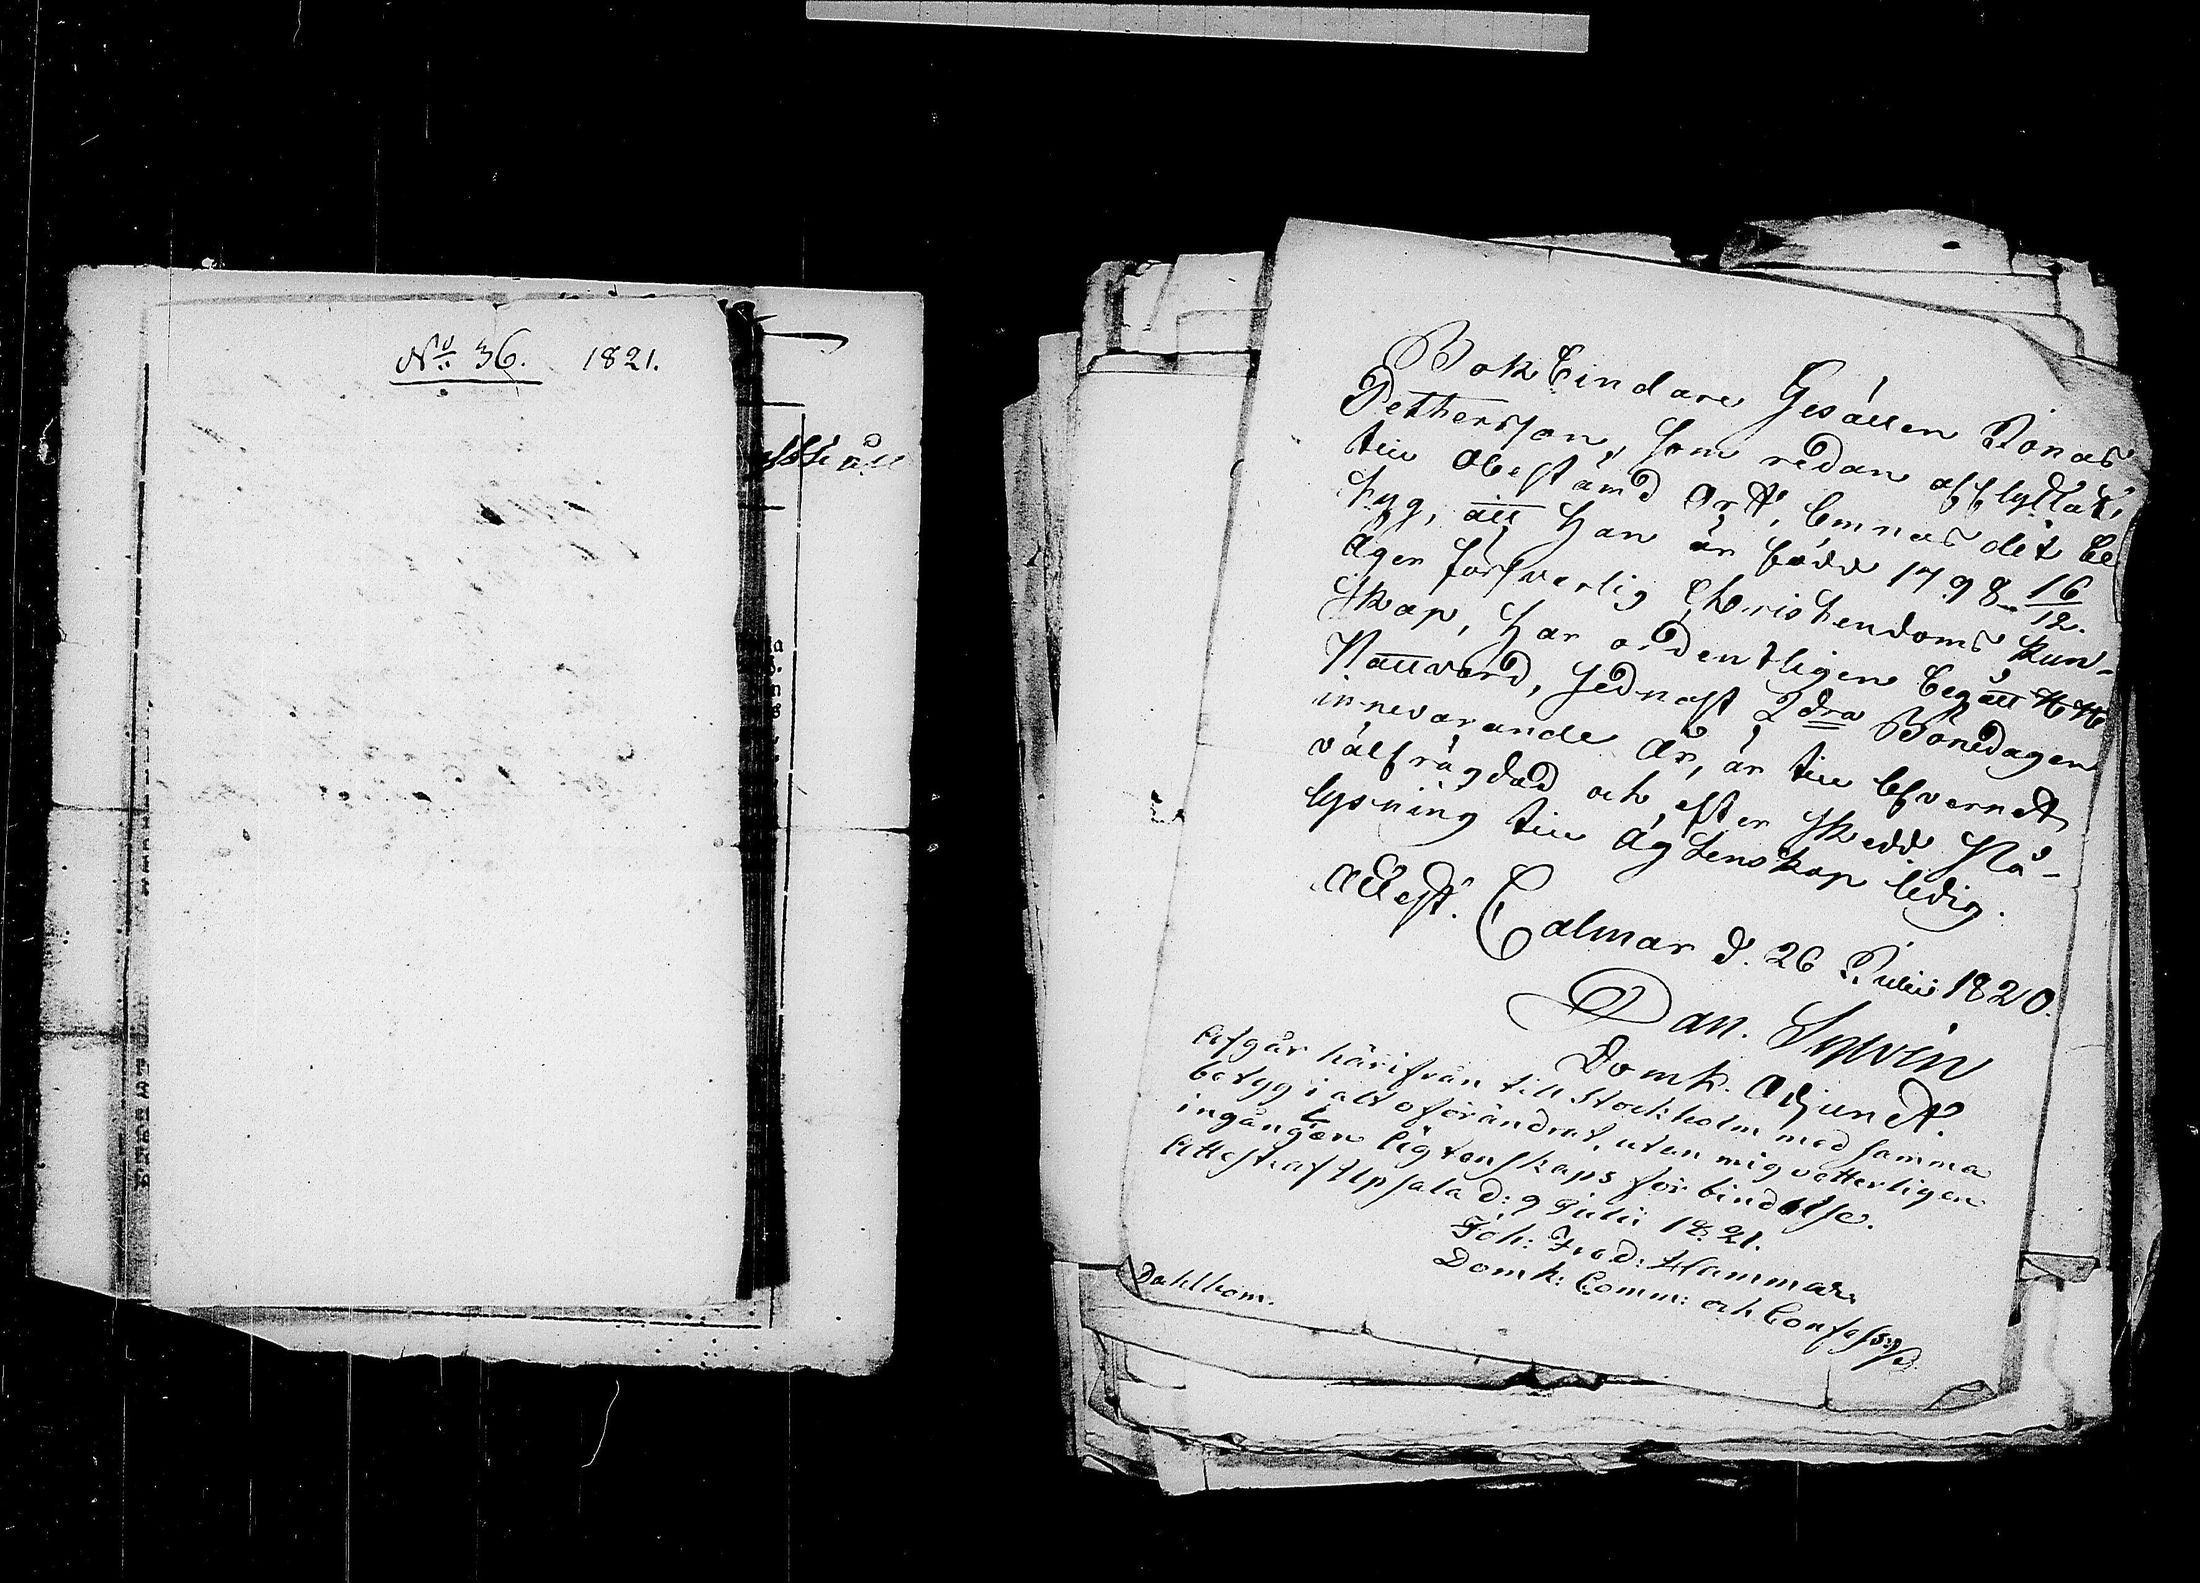 No: 36. 1821.
Bokbindare Gesällen Jonas
Pettersson, som redan afflyttat
till obestämd ort, lemnas det be
tyg, att Han är född 1798 16/12.
äger försvarlig Christendoms kun-
skap, Har ordentligen begått HH
Nattvard, sednast 2dra Bönedagen
innevarande år, är till lefvernet
välfrägdad och efter skedd på-
lysning till ägtenskap ledig.
Attest. Calmar d. 26 Julii 1820.
Dan. Sylvén
Domk. Adjunct.
Afgår härifrån till Stockholm med samma
betyg i alt oförändrat, utan mig vetterligen
ingången ägtenskaps förbindelse.
Attest. af Upsala d: 9 Julii 1821.
Joh: Fred: Hammar
Domk: Comm: och Confess:
Dahlbom.